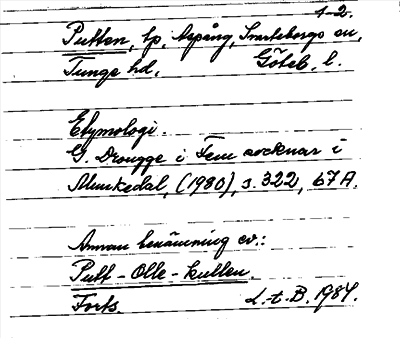 1-2.
Putten, lp, Aspång, Svarteborgs sn,
Tunge hd, Göteb. l.
Etymologi.
G. Drougge i Fem socknar i
Munkedal, (1980), s. 322, 67A.
Annan benämning ev.:
Putt-Olle-kullen.
Forts. L.t.B. 1984.